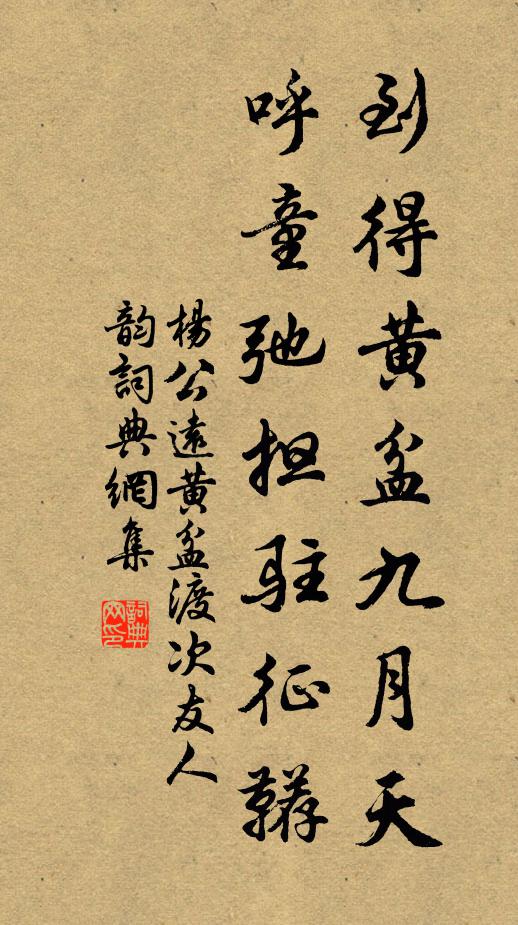 到得黄盆九月天
呼童弛担驻征韉
楊公遠黄盆渡次友人
韵詞典網集
詞典
网印